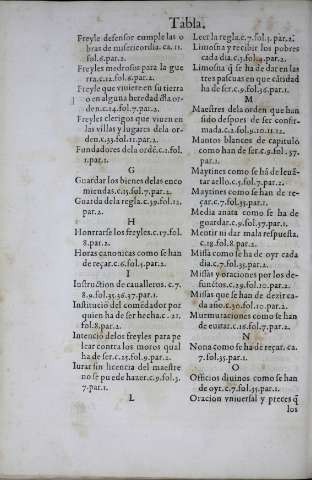 Tabla.
Freyle defensor cumple las o
bras de misericordia. ca. 11.
fol. 6. par. 2.
Freyles medrosos para la gue
rra. c. 12. fol. 6. par. 2.
Freyle que viuiere en su tierra
o en alguna heredad dla or-
den. c. 14. fol. 7. par. 2.
Freyles clerigos que viuen en
las villas y lugares dela or-
den. c. 33. fol. 11. par. 2.
Fundadores dela ordē. c. 1. fol.
1. par. 1.
G
Guardar los bienes delas enco
miendas. c. 15. fol. 7. par. 2.
Guarda dela regla. c. 39. fol. 12.
par. 2.
H
Honrrarse los freyles. c. 17. fol.
8. par. 2.
Horas canonicas como se han
de reçar. c. 6. fol. 5. par. 2.
I
Instruction de caualleros. c. 7.
8. 9. fol. 35. 36. 37. par. 1.
Institució del comēdador por
quien ha de ser hecha. c. 21.
fol. 8. par. 2.
Intenció delos freyles para pe
lear contra los moros qual
ha de ser. c. 25. fol. 9. par. 2.
Iurar sin licencia del maestre
no se puede hazer. c. 9. fol. 3
7. par. 1.
L
Leer la regla. c. 7. fol. 5. par. 2.
Limosna y recibir los pobres
cada dia. c. 3. fol. 4. par. 2.
Limosna q̃ se ha de dar en las
tres pascuas en que cātidad
ha de ser. c. 9. fol. 36. par. 1.
M
Maestres dela orden que han
sido despues de ser confir-
mada. c. 2. fol. 9. 10. 11. 12.
Mantos blancos de capitulo
como han de ser. c. 9. fol. 37.
par. 1.
Maytines como se há de leuã-
tar a ello. c. 5. fol. 7. par. 2.
Maytines como se han de re-
çar. c. 7. fol. 35. par. 1.
Media anata como se ha de
guardar. c. 9. fol. 37. par. 1.
Mentir ni dar mala respuesta.
c. 18. fol. 8. par. 2.
Missa como se ha de oyr cada
dia. c. 7. fol. 35. par. 1.
Missas y oraciones por los de-
functos. c. 29. fol. 10. par. 2.
Missas que se han de dezir ca-
da año. c. 30. fol. 10. par. 2.
Murmuraciones como se han
de euitar. c. 16. fol. 7. par. 2.
N
Nona como se ha de reçar. ca.
7. fol. 35. par. 1.
O
Officios diuinos como se han
de oyr. c. 7. fol. 35. par. 1.
Oracion vniuersal y preces q̃
los